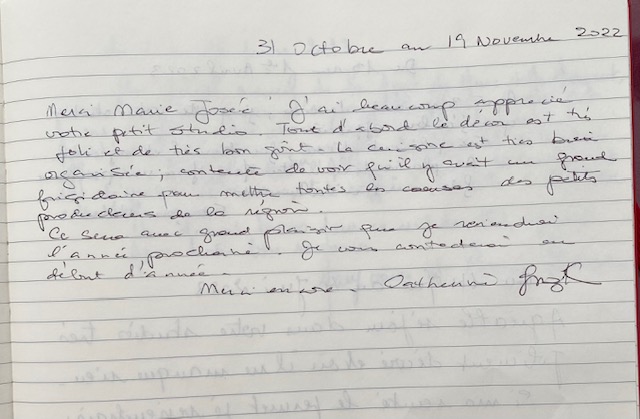 31 Octobre au 19 Novembre 2022
Merci Marie Josée J'ai beaucoup apprécié
votre petit studio. Tout d'abord le décor est très
joli et de très bon goût. La cuisine est très bien
organisée ; contente de voir qu'il y avait un grand
frigidaire pour mettre toutes les courses des petits
producteurs de la région.
Ce sera avec grand plaisir que je reviendrai
l'année prochaine. Je vous contacterai en
début d'année.
Merci encore. Catherine